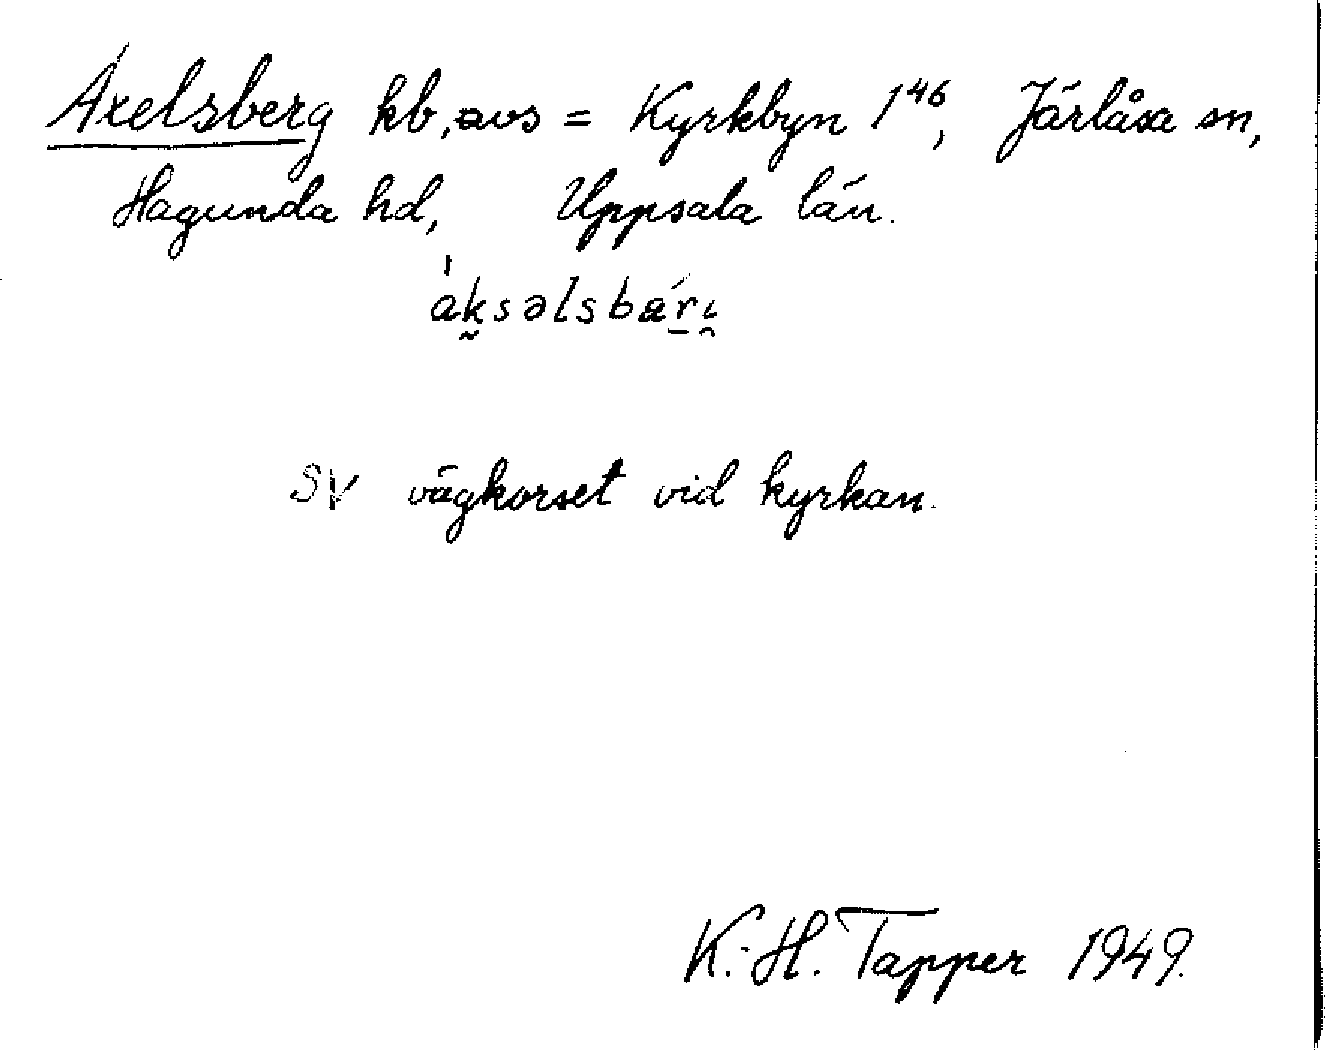 Axelsberg kb, avs = Kyrkbyn 1⁴⁶, Järlåsa sn,
Hagunda hd, Uppsala län.
ák̰səlsbárı̯
SV vägkorset vid kyrkan.
K.-H. Tapper 1949.